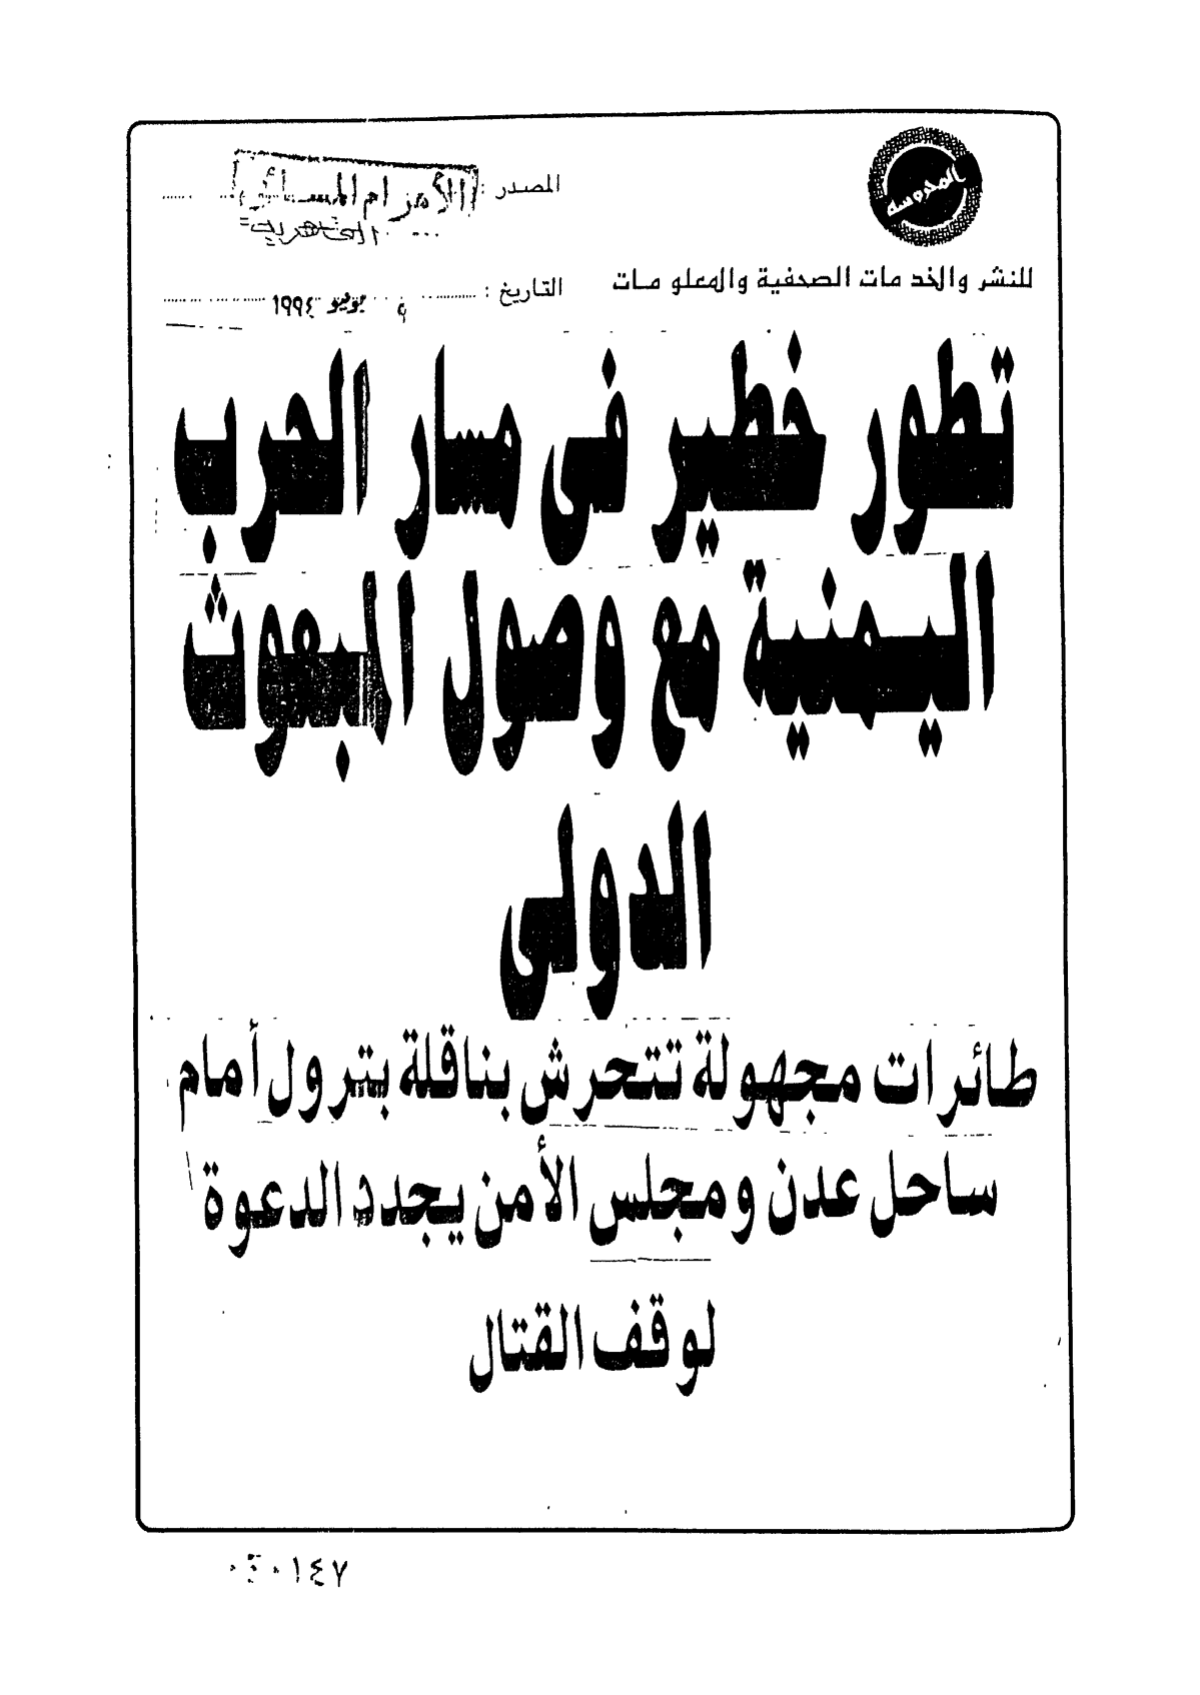 المحروسة
المصدر : الأهرام المسائى
القاهرية
للنشر والخدمات الصحفية والمعلومات
التاريخ : ٩ يونيو ١٩٩٤
تطور خطير فى مسار الحرب
اليمنية مع وصول المبعوث
الدولى
طائرات مجهولة تتحرش بناقلة بترول أمام
ساحل عدن ومجلس الأمن يجدد الدعوة
لوقف القتال
٠١٤٧